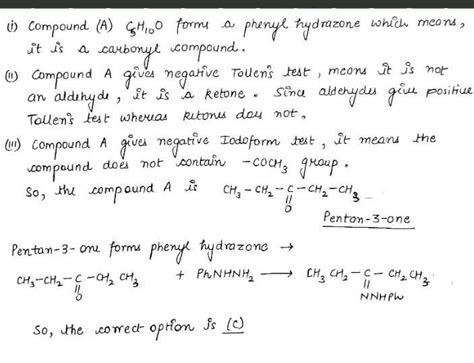 (i) Compound (A) C5H10O forms a phenyl hydrazone which means,
it is a carbonyl compound.
(ii) Compound A gives negative Tollen's test, means it is not
an aldehyde, it is a ketone. Since aldehydes give positive
Tollen's test whereas ketones does not.
(iii) Compound A gives negative Iodoform test, it means the
compound does not contain -COCH3 group.
So, the compound A is CH3-CH2-C-CH2-CH3
||
O
Pentan-3-one
Pentan-3-one forms phenyl hydrazone →
CH3-CH2-C-CH2 CH3 + PhNHNH2 → CH3 CH2-C-CH2CH3
|| ||
O NNHPh
So, the correct option is (C)